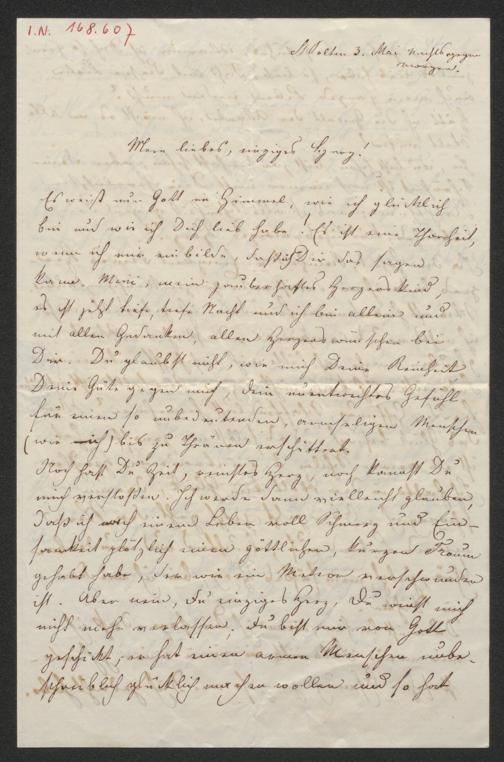 I.N. 168.607
St Pölten 3. Mai Nachts gegen
Morgen.
Mein liebes, einziges Herz!
Es weiß nur Gott im Himmel, wie ich glücklich
bin und wie ich Dich lieb habe! Es ist eine Thorheit,
wenn ich mir einbilde, daß ich Dir das sagen
kann. Mein, mein zauberhaftes Herzenskind,
es ist jetzt tiefe, tiefe Nacht und ich bin allein und
mit allen Gedanken, allen Herzenswünschen bei
Dir. Du glaubst nicht, wie mich Deine Reinheit
Deine Güte gegen mich, Dein unentweihtes Gefühl
für einen so unbedeutenden, armseligen Menschen
(wie ich) bis zu Thränen erschüttert.
Noch hast Du Zeit, reinstes Herz noch kannst Du
mich verstoßen. Ich werde dann vielleicht glauben,
daß ich nach einem Leben voll Schmerz und Ein-
samkeit plötzlich einen göttlichen, kurzen Traum
gehabt habe, der wie ein Meteor verschwunden
ist. Aber nein, Du einziges Herz, Du wirst mich
nicht mehr verlassen, Du bist mir von Gott
geschickt, er hat einen armen Menschen unbe-
schreiblich glücklich machen wollen und so hat